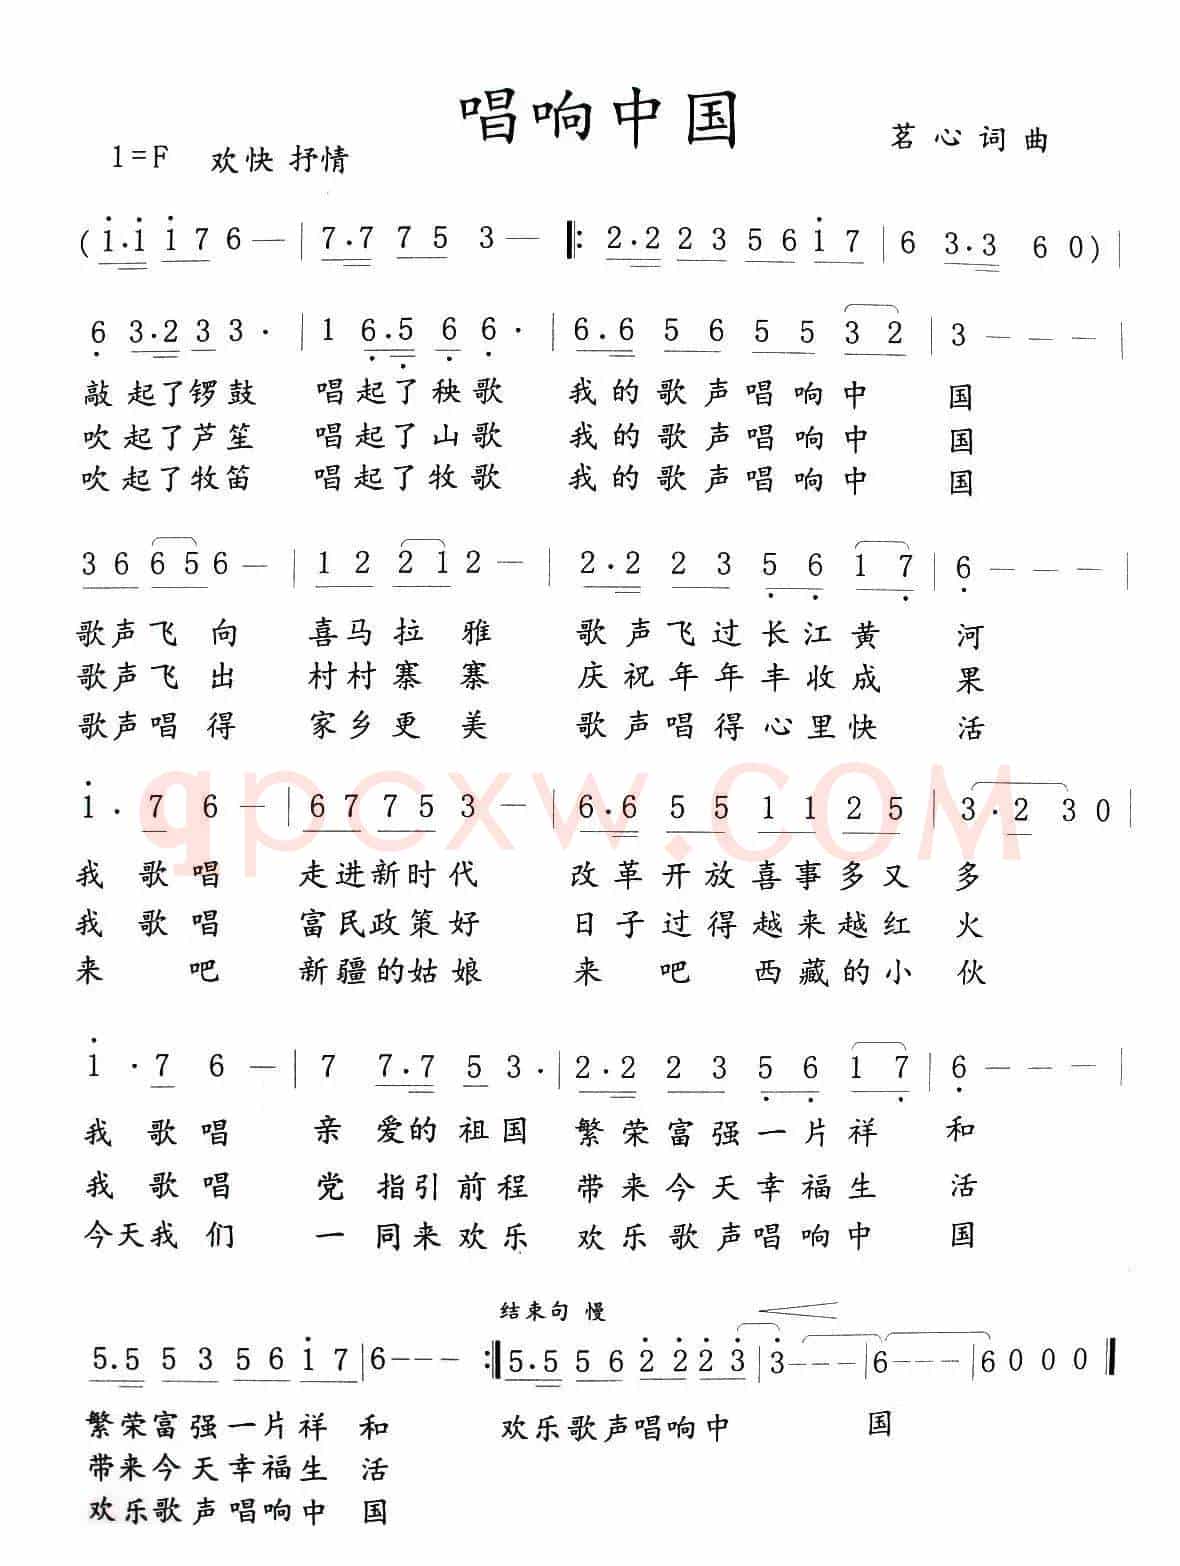 唱响中国
1=F 欢快 抒情
茗心词曲
(1.1 1 7 6 — | 7.7 7 5 3 — ‖: 2.2 2 3 5 6 1 7 | 6 3.3 6 0) |
6 3.2 3 3. | 1 6.5 6 6. | 6.6 5 6 5 5 3 2 | 3 — — — |
敲起了锣鼓 唱起了秧歌 我的歌声唱响中国
吹起了芦笙 唱起了山歌 我的歌声唱响中国
吹起了牧笛 唱起了牧歌 我的歌声唱响中国
3 6 6 5 6 — | 1 2 2 1 2 — | 2.2 2 3 5 6 1 7 | 6 — — — |
歌声飞向 喜马拉雅 歌声飞过长江黄河
歌声飞出 村村寨寨 庆祝年年丰收成果
歌声唱得 家乡更美 歌声唱得心里快活
1. 7 6 — | 6 7 7 5 3 — | 6.6 5 5 1 1 2 5 | 3.2 3 0 |
qpcxw.COM
我歌唱 走进新时代 改革开放喜事多又多
我歌唱 富民政策好 日子过得越来越红火
来吧 新疆的姑娘 来吧 西藏的小伙
1. 7 6 — | 7 7.7 5 3. | 2.2 2 3 5 6 1 7 | 6 — — — |
我歌唱 亲爱的祖国 繁荣富强一片祥和
我歌唱 党指引前程 带来今天幸福生活
今天我们 一同来欢乐 欢乐歌声唱响中国
结束句 慢
5.5 5 3 5 6 1 7 | 6 — — — :‖ 5.5 5 6 2 2 2 3 | 3 — — — | 6 — — — | 6 0 0 0 ‖
繁荣富强一片祥和 欢乐歌声唱响中国
带来今天幸福生活
欢乐歌声唱响中国